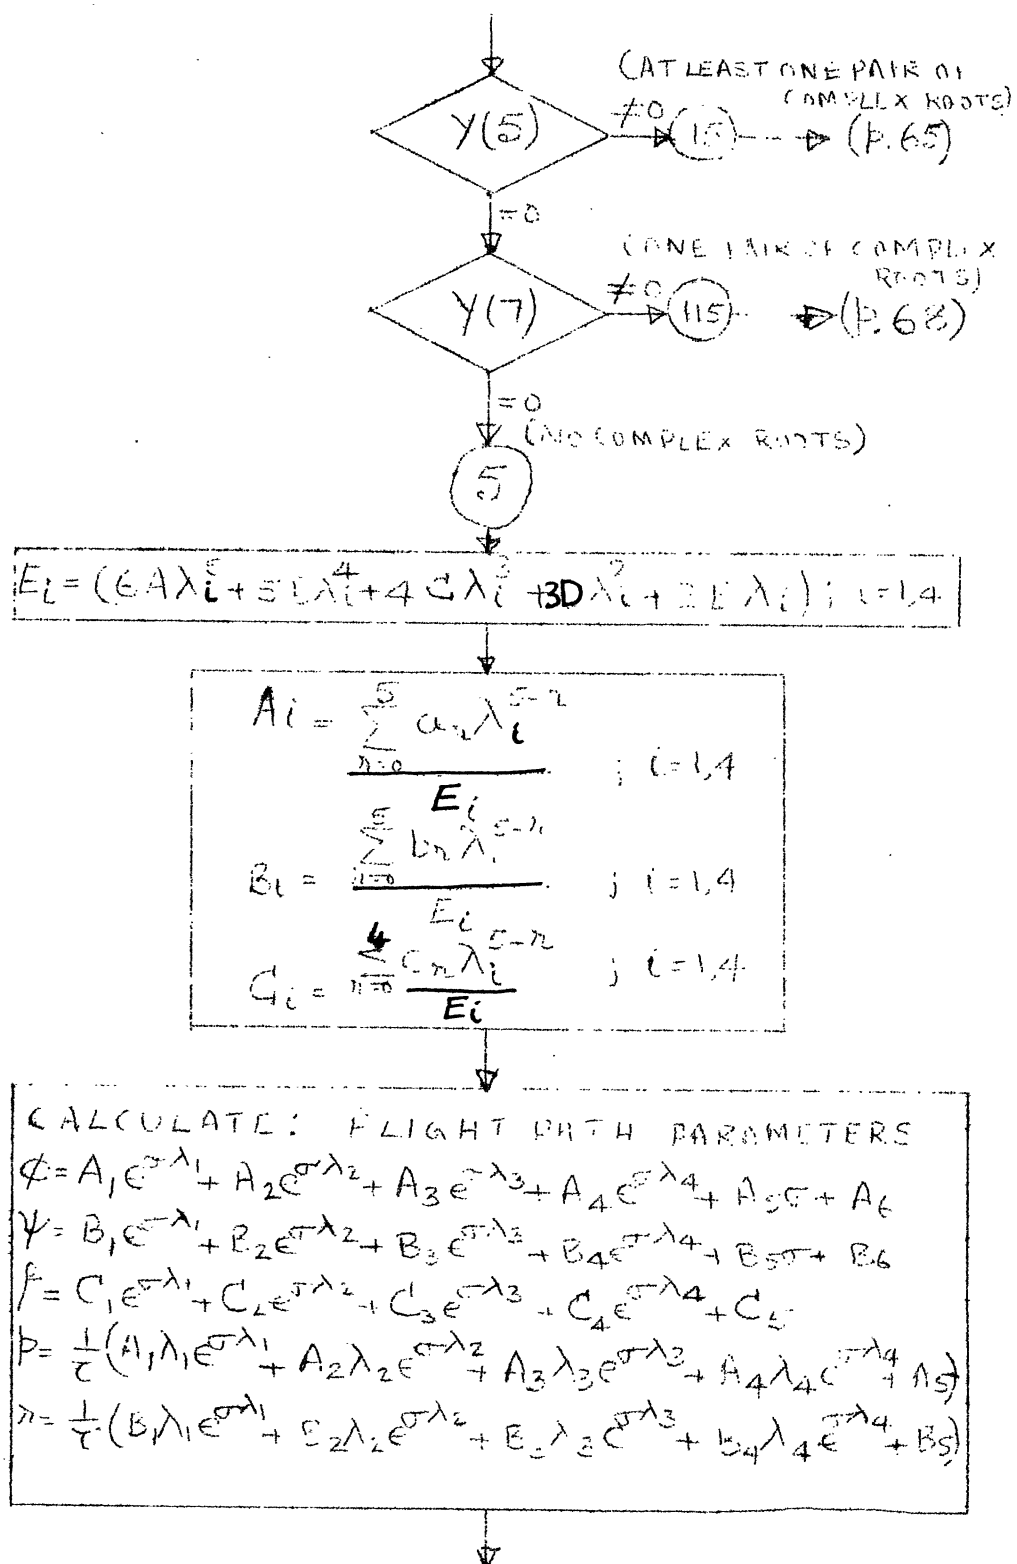 (AT LEAST ONE PAIR OF
COMPLEX ROOTS)
Y(5) ≠0 15 (P.65)
=0
(ONE PAIR OF COMPLEX
ROOTS)
Y(7) ≠0 115 (P.68)
=0
(NO COMPLEX ROOTS)
5
E_i = (6Aλ_i^5 + 5Bλ_i^4 + 4Cλ_i^3 + 3Dλ_i^2 + 2Eλ_i); i=1,4
A_i = Σ_{n=0}^{5} a_n λ_i^{5-n} / E_i ; i=1,4
B_i = Σ_{n=0}^{5} b_n λ_i^{5-n} / E_i ; i=1,4
C_i = Σ_{n=0}^{4} c_n λ_i^{5-n} / E_i ; i=1,4
CALCULATE: FLIGHT PATH PARAMETERS
φ = A_1 e^{σλ_1} + A_2 e^{σλ_2} + A_3 e^{σλ_3} + A_4 e^{σλ_4} + A_5 σ + A_6
ψ = B_1 e^{σλ_1} + B_2 e^{σλ_2} + B_3 e^{σλ_3} + B_4 e^{σλ_4} + B_5 σ + B_6
β = C_1 e^{σλ_1} + C_2 e^{σλ_2} + C_3 e^{σλ_3} + C_4 e^{σλ_4} + C_5
p = 1/τ (A_1 λ_1 e^{σλ_1} + A_2 λ_2 e^{σλ_2} + A_3 λ_3 e^{σλ_3} + A_4 λ_4 e^{σλ_4} + A_5)
r = 1/τ (B_1 λ_1 e^{σλ_1} + B_2 λ_2 e^{σλ_2} + B_3 λ_3 e^{σλ_3} + B_4 λ_4 e^{σλ_4} + B_5)